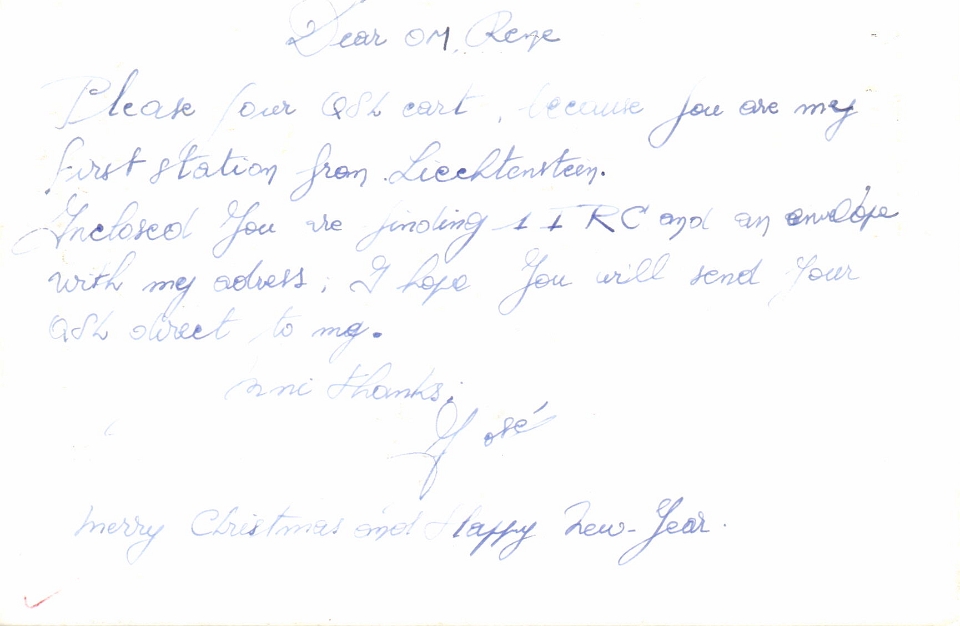 Dear OM, Rene
Please your QSL cart, because you are my
first station from Liechtenstein.
Inclosed You are finding 1 IRC and an envelope
with my adress; I hope You will send Your
QSL direct to my.
mni thanks;
José
Merry Christmas and Happy New-Year.